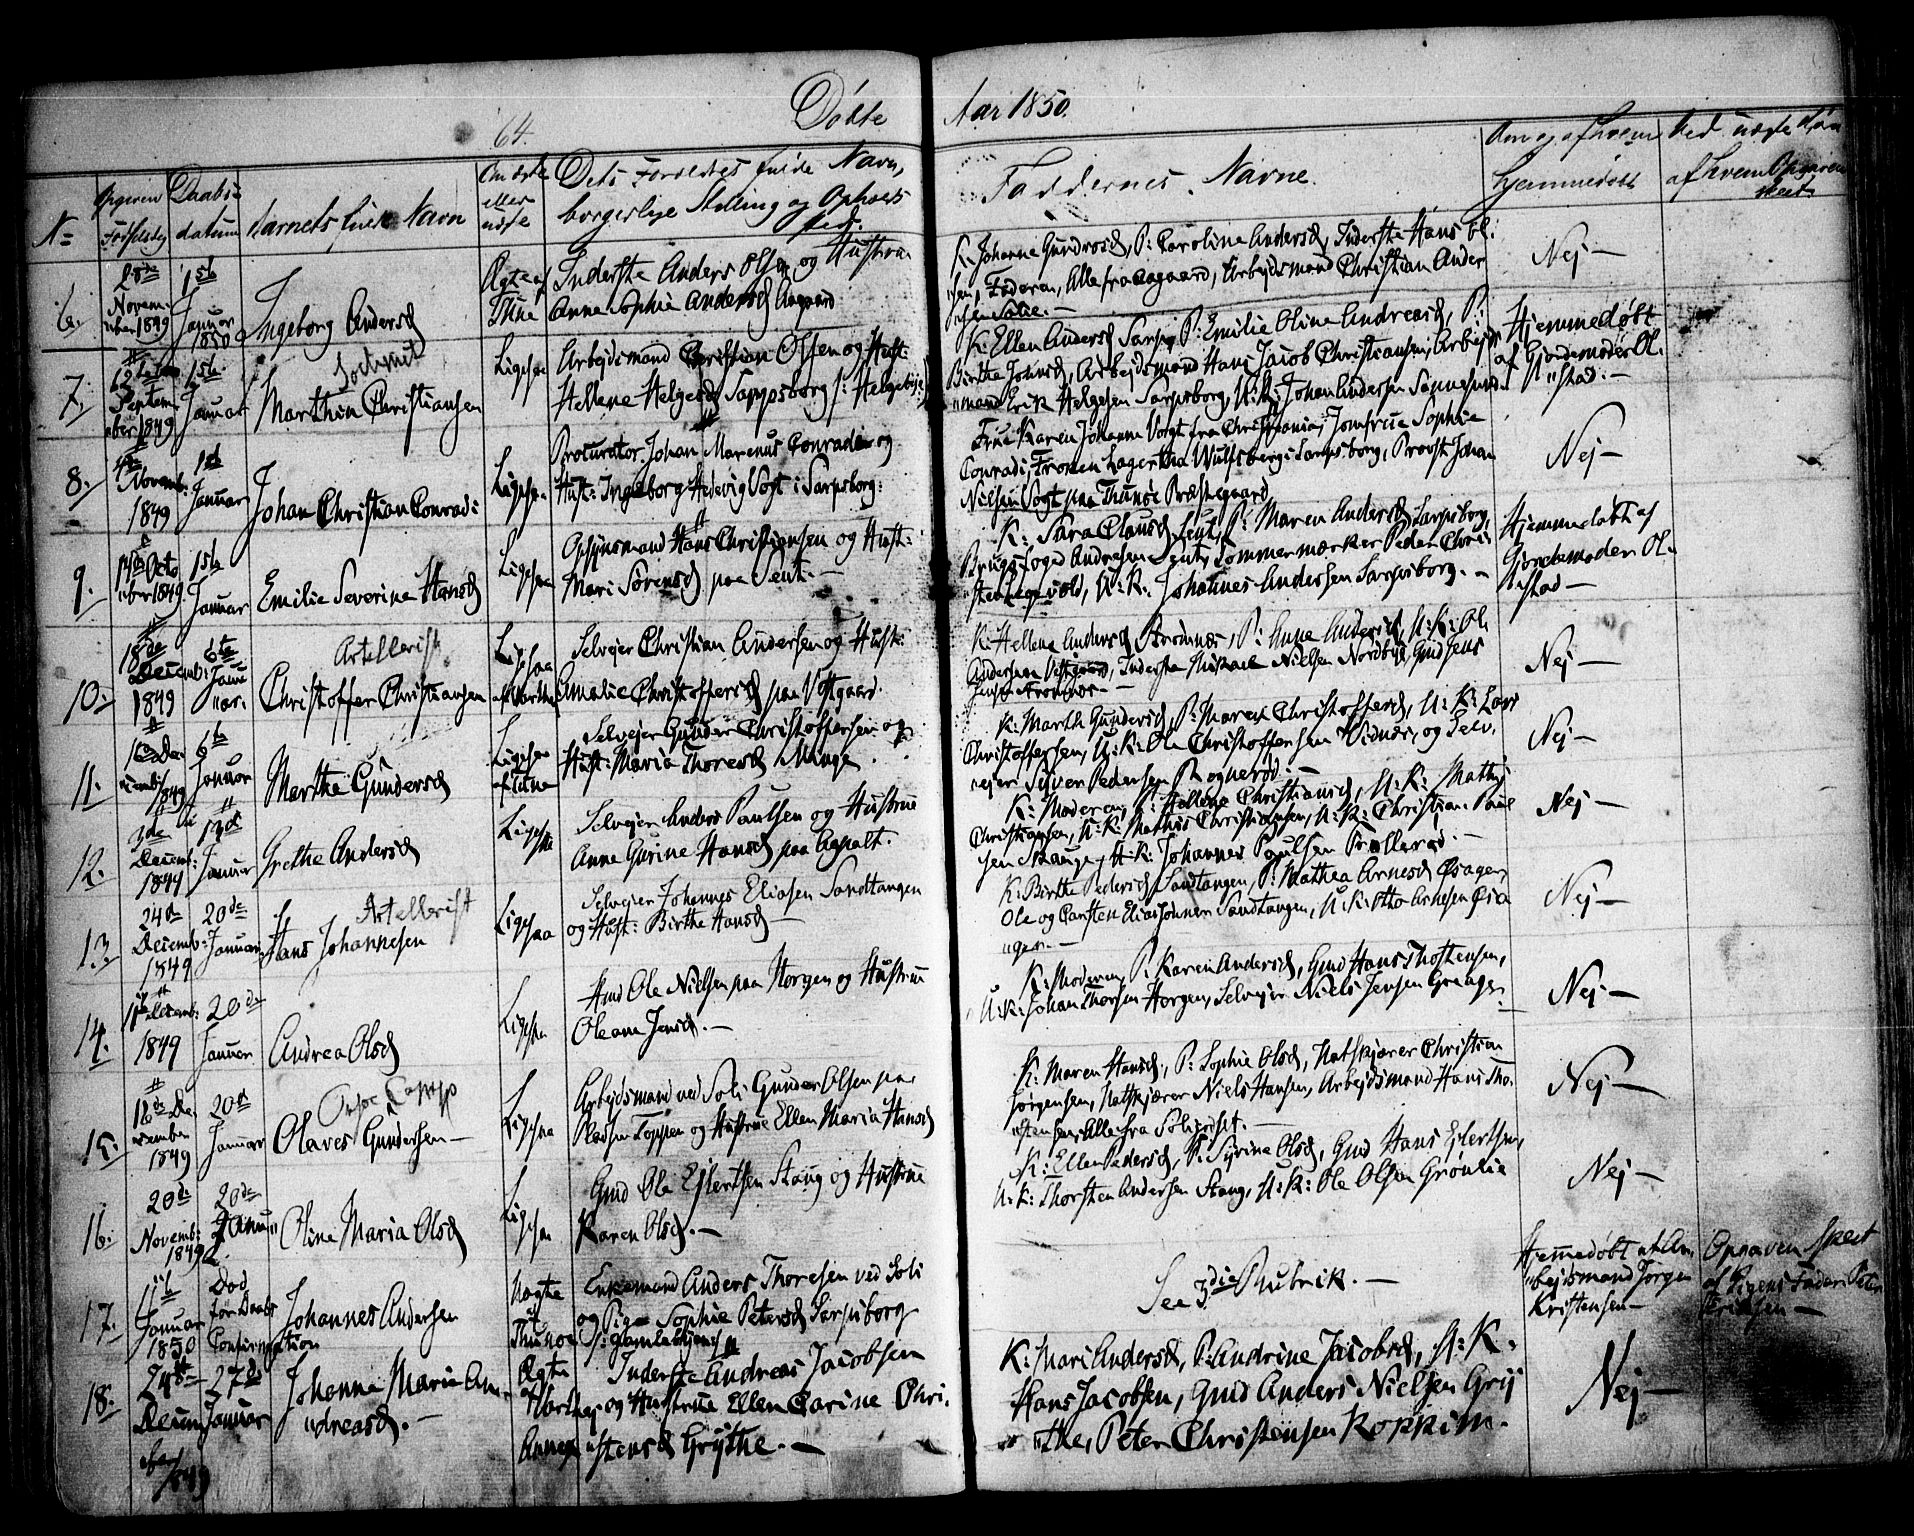 64.
Døbte
Aar 1850.
N=
Opgiven Fødselsdag
Daabsdatum
Barnets fulde Navn
Om ægte eller uægte
Dets Foreldres fulde Navn,
borgerlige Stilling og Opholssted.
Faddernes Navne.
Om og af hvem
hjemmedøbt
Ved uægte Børn
af hvem Opgaven
skeet
6.
28de Novem-
ber 1849
1ste Januar 1850
Ingeborg Andersd
Ægte af
Thune
Inderste Anders Olsen og Hustrue
Anne Sophie Andersd Aagaard
K: Johanne Gundrosd, P: Caroline Andersd, Inderste Hans Ol-
sen, Faderen, Alle fra Aagaard, Arbejdsmand Christian Ander
Nej —
7.
12te Septem-
ber 1849
1ste Januar
Marthin Christiansen
Ligesaa
Arbejdsmand Christian Olsen og Hust:
Hellene Helgesd Sarpsborg
K: Ellen Andersd Sarpsb, P: Emilie Oline Andreasd, P:
Birthe Johnsd, Arbejdsmand Hans Jacob Christiansen, Arbejds
mand Erik Helgesen Sarpsborg, U: K: Johan Andersen
Hjemmedøbt
af Gjordemoder Ol-
stad. —
8.
Novemb: 1849
1ste Januar
Johan Christian Conradi
Ligesaa
Procurator Johan Marenus Conradi og
Hust: Ingeborg Hedevig Vogt i Sarpsborg:
Frue Karen Johanne Vogt fra Christiania, Jomfrue Sophie
Conradi, Frøken Lagertha Wulfsberg i Sarpsborg, Provst Johan
Nielsen Vogt paa Thunøe Præstegaard
Nej —
9.
14de Octo
ber 1849
1ste Januar
Emilie Severine Hansd
Ligesaa
Opsynsmand Hans Christiansen og Hust:
Mari Sørensd paa Sent. —
K: Sara Clausd Sent, P: Maren Andersd Sarpsborg,
Brugsfoged Andresen Sent, Tømmermærker Peder Chri-
U: K: Johannes Andersen Sarpsborg. —
Hjemmedøbt af
Gjordemoder Ol-
stad —
10.
18de Decemb: 1849
6te Janu
ar.
Artellerist
Christoffer Christiansen
Ligesaa
Selvejer Christian Andersen og Hust:
Amalie Christoffersd paa Vestgaard.
K: Hellene Andersd, P: Anne Andersd, U: K: Ole
Andersen Vestgaard, Inderste Mikael Nielsen Nordby, Gmd Jens
Nej —
11.
16de De
cemb: 1849
6te Januar
Marthe Gundersd
Ligesaa
Selvejer Gunder Christoffersen og
Hust: Maria Thoresd Minge.
K: Marth Gundersd, P: Maren Christoffersd, U: K: Lars
Christoffersen, U: K: Ole Christoffersen Vidnæs, og Selv.
Nej —
12.
3de Decemb: 1849
13de Januar
Grethe Andersd
Ligesaa
Selvejer Anders Paulsen og Hustrue
Anne Gurine Hansd paa Agsalt.
K: Moderen, P: Hellene Christiansd, U: K: Mathis
Christiansen, U: K: Mathis Christiansen, U: K: Christian Paul
sen Skauge, U: K: Johannes Paulsen
Nej —
13.
24de Decemb: 1849
20de Januar
Artellerist
Hans Johannesen
Ligesaa
Selvejer Johannes Eliasen Sandtangen
og Hust: Birthe Hansd —
K: Birthe Pedersd Sandtangen, P: Mathea Arnesd
Ole og Carsten Eliassønner Sandtangen, U: K: Otto Arnesen
Nej —
14.
Decemb: 1849
20de Januar
Andrea Olsd
Ligesaa
Gmd Ole Nielsen paa Horgen og Hustrue
Oleane Jensd. —
K: Moderen, P: Karen Andersd, Gmd Hans Thostensen,
U: K: Johan Thorsen Horgen, Selvejer Niels Jensen
Nej —
15.
16de De
cember 1849
20de Januar
Olaves Gundersen —
Ligesaa
Arbejdsmand ved Soli Gunder Olsen paa
og Hustrue Ellen Maria Hansd
K: Maren Hansd, P: Sophie Olsd, Natskjærer Christian
Jørgensen, Natskjærer Niels Hansen, Arbejdsmand Hans Tho-
stensen, Alle fra Soli
Nej —
16.
20de Novemb: 1849
20de Janu
Oline Maria Olsd
Ligesaa
Gmd Ole Ejlertsen Stang og Hustrue
Karen Olsd. —
K: Ellen Pedersd, P: Syrine Olsd, Gmd Hans Ejlertsen,
U: K: Thorsten Andersen Stang, U: K: Ole Olsen Grønlie
Nej —
17.
11te Januar 1850
Død før Daabs
Confirmation
Johannes Andersen
Uægte af
Thunøe
Enkemand Anders Thoresen ved Soli
og Pige Sophie Petersd Sarpsborg
See 3die Rubrik. —
Hjemedøbt af Ar-
bejdsmand Jørgen
Kristensen —
Opgaven skeet
af Pigens Fader Peter
Eriksen —
18.
24de Decem
ber 1849
27de Januar
Johanne Marie An-
dreasd. —
Ægte
Inderste Andreas Jacobsen
og Hustrue Ellen Carine Chri-
stensd Grythe. —
K: Mari Andersd, P: Andrine Jacobsd, U: K:
Hans Jacobsen, Gmd Anders Nielsen Gry
the, Peter Christensen Kokkim. —
Nej —